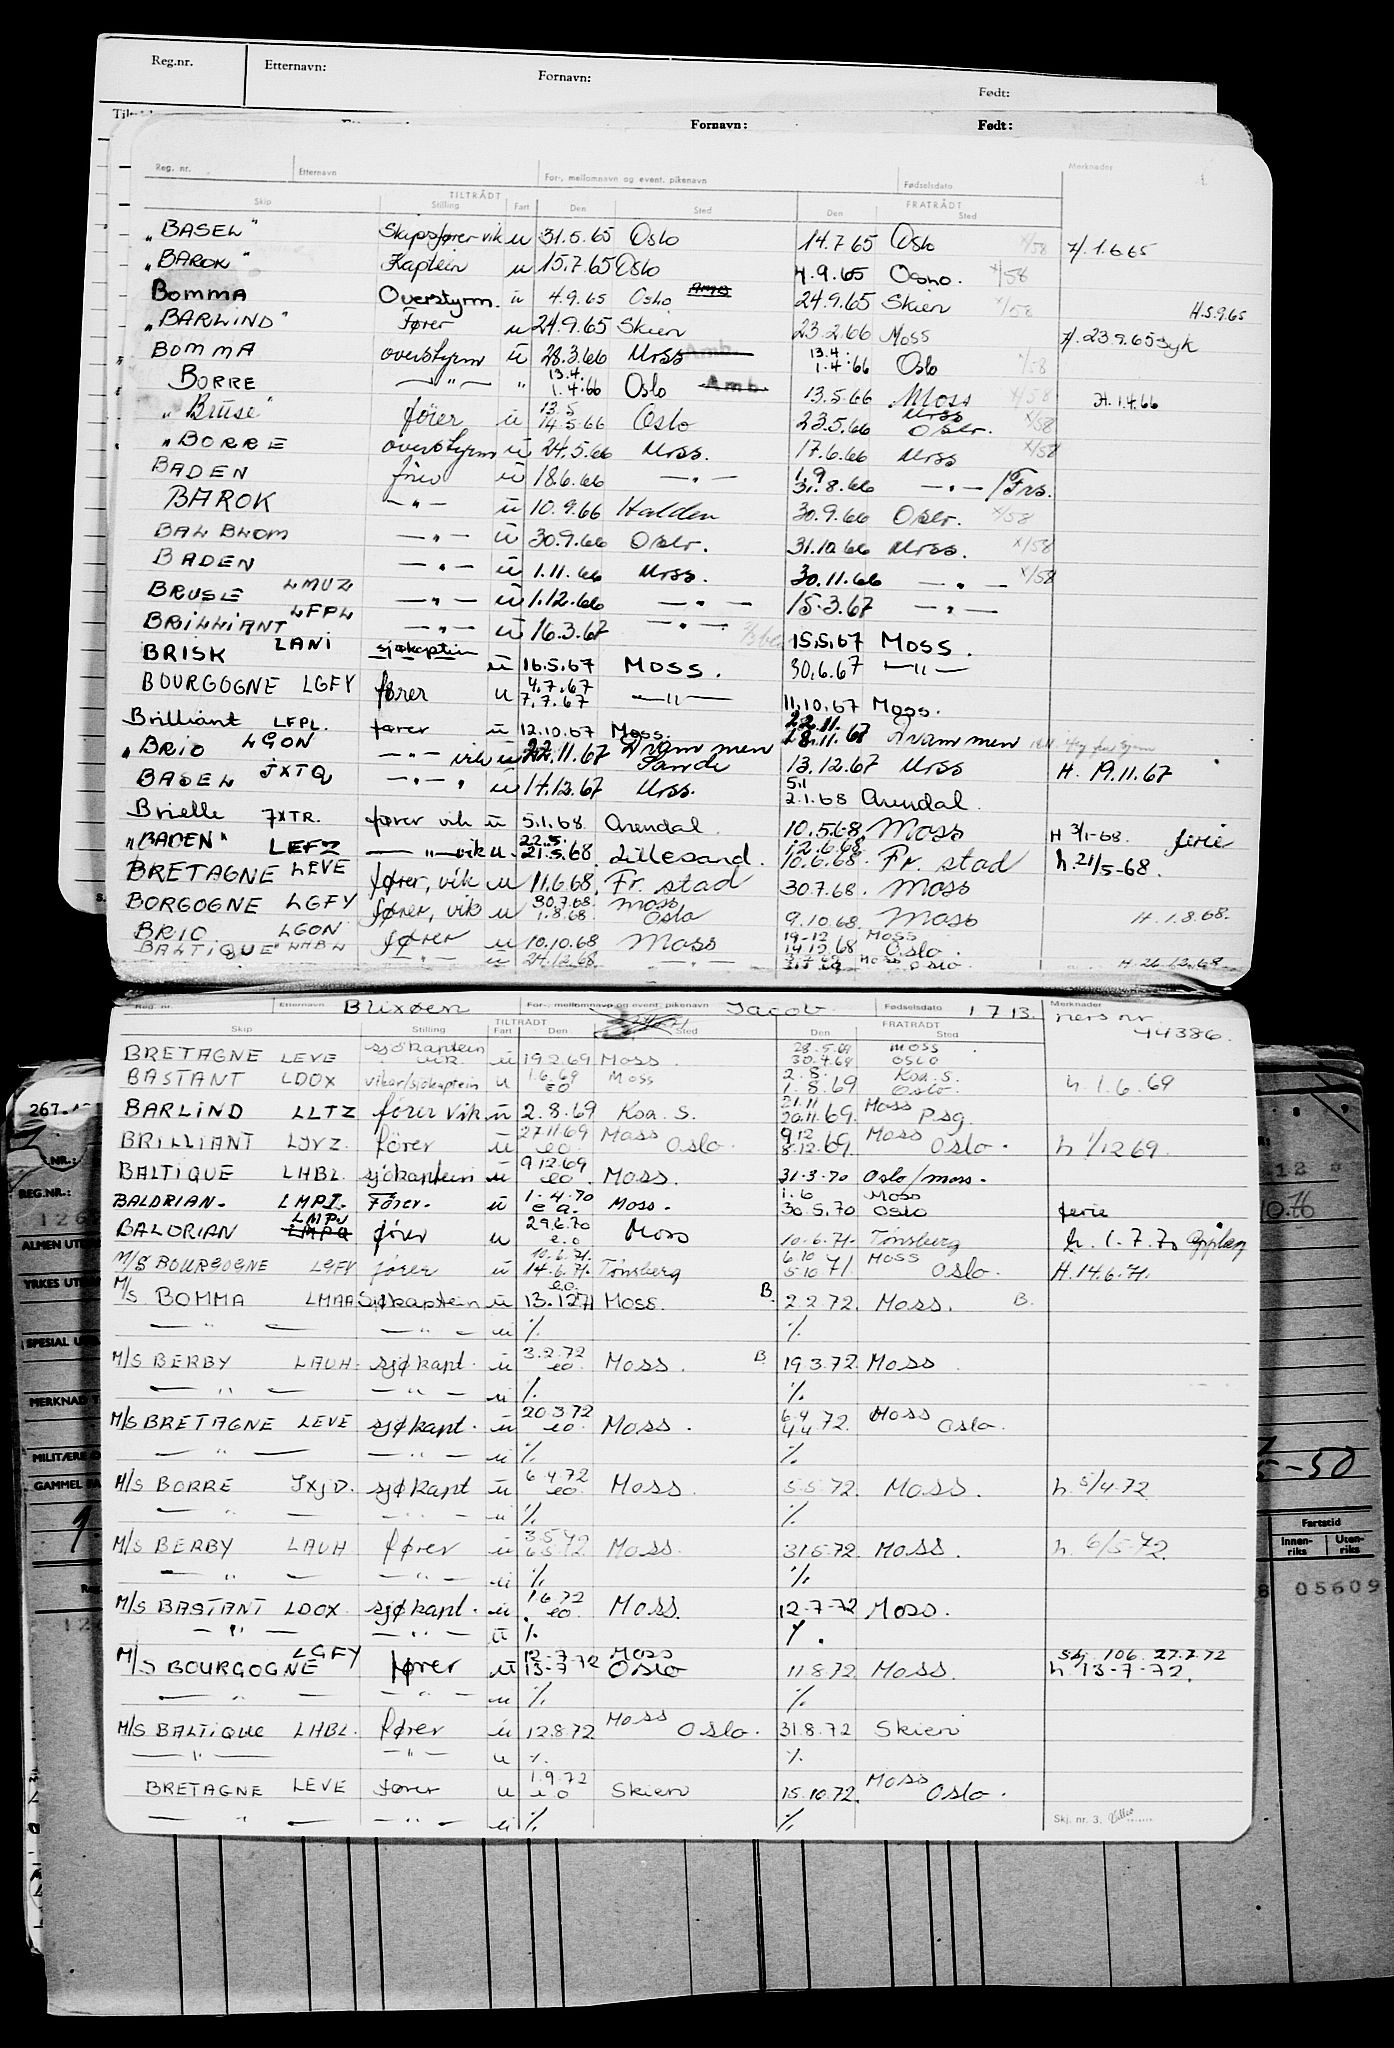 Reg.nr. Etternavn: Fornavn: Født:
Fornavn: Født:
Reg. nr. Etternavn For-, mellomnavn og event. pikenavn Fødselsdato Merknader
TILTRÅDT FRATRÅDT
Skip Stilling Fart Den Sted Den Sted
"BASEL" Skipsfører vik u 31.5.65 Oslo 14.7.65 Oslo x/58 H. 1.6.65
"BAROK" Kaptein u 15.7.65 Oslo 4.9.65 Oslo. x/58
BOMMA Overstyrm. u 4.9.65 Oslo 24.9.65 Skien x/58 H.5.9.65
"BARLIND" Fører u 24.9.65 Skien 23.2.66 Moss H. 23.9.65 syk
BOMMA overstyrm u 28.3.66 Moss Amb. 13.4. 1.4.66 Oslo x/58
BORRE — " — " 13.4. 1.4.66 Oslo Amb. 13.5.66 Moss x/58 H. 1.4.66
"Bruse" fører u 13.5 14.5.66 Oslo 23.5.66 Moss Oslo. x/58
"BORRE overstyrm u 24.5.66 Moss. 17.6.66 Moss x/58
BADEN fører u 18.6.66 — " — 1.9 31.8.66 — " — / Frs.
BAROK — " — u 10.9.66 Halden 30.9.66 Oslo. x/58
BALBLOM — " — u 30.9.66 Oslo. 31.10.66 Moss. x/58
BADEN — " — u 1.11.66 Moss. 30.11.66 — " — x/58
BRUSE LMUZ — " — u 1.12.66 — " — 15.3.67 — " —
BRILLIANT LFPL — " — u 16.3.67 — " — 15.5.67 Moss.
BRISK LANI sjøkaptein u 16.5.67 Moss. 30.6.67 — " —
BOURGOGNE LGFY fører u 4.7.67 7.7.67 — " — 11.10.67 Moss.
Brilliant LFPL. fører u 12.10.67 Moss. 22.11. 18.11.67 Drammen
"BRIO LGON — " — vik u 22.11.67 Drammen Sande 13.12.67 Moss H. 19.11.67
BASEL JXTQ — " — " u 14.12.67 Moss. 5.1 2.1.68 Arendal.
Brielle JXTR. fører vik u 5.1.68. Arendal. 10.5.68. Moss H 3/1-68. ferie
"BADEN" LEFZ — " — vik u. 22.5. 21.5.68 Lillesand. 12.6.68 10.6.68. Fr. stad h. 21/5-68.
BRETAGNE LEVE fører, vik u 11.6.68. Fr. stad 30.7.68. Moss
BORGOGNE LGFY fører, vik u 30.7.68. 1.8.68. Moss Oslo 9.10.68. Moss H. 1.8.68.
BRIO LGON fører u 10.10.68 Moss 19-12 14.12.68 Moss Oslo.
BALTIQUE" LHBL — " — u 24.12.68. — " — Moss Oslo. H. 26.12.68
Reg. nr. Etternavn Blixøen For-, mellomnavn og event. pikenavn Jacob Fødselsdato 1 7 13. Merknader
Pers nr 44386.
TILTRÅDT FRATRÅDT
Skip Stilling Fart Den Sted Den Sted
BRETAGNE LEVE sjøkaptein vik. u 19.2.69 Moss. 28.5.69 30.4.69 Moss. Oslo
BASTANT LDOX vikar/sjøkaptein u 1.6.69 eo Moss 2.8. 1.8.69 Ksa. S. Oslo. h. 1.6.69
BARLIND LLTZ fører vik u 2.8.69 Ksa. S. 21.11 20.11.69. Moss Psg.
BRILLIANT LJVZ. fører u 27.11.69 eo Moss Oslo. 9.12 8.12.69. Moss Oslo. h 1/12 69.
BALTIQUE LHBL. sjøkaptein u 9.12.69 eo. Moss. 31.3.70 Oslo/moss.
BALDRIAN. LMPJ. Fører. u 1.4.70 e.o. Moss. 1.6 30.5.70 Moss Oslo ferie
BALDRIAN LMPJ LMPQ fører u 29.6.70 e.o Moss 10.6.71. Tønsberg h. 1.7.70
M/S BOURGOGNE LGFY fører u 10.6.71. 14.6.71. Tønsberg 6.10 5.10 71. Moss Oslo. H.14.6.71.
M/S BOMMA LMAA Sjøkaptein u eo. 13.12.71 Moss. B. 2.2.72. Moss. B.
— " — — " — u ./. ./.
M/S BERBY LAUH. sjøkapt. u 3.2.72 eo. Moss. B 19.3.72. Moss.
— " — — " — u ./. ./.
M/S BRETAGNE LEVE sjøkapt. u 20.3.72 eo. Moss. 6.4 4.4 72. Moss Oslo.
— " — — " — u ./. ./.
M/S BORRE JXJD. sjøkapt u 6.4.72 eo. Moss. 5.5.72. Moss. h. 5/4.72.
— " — — " — u ./. ./.
M/S BERBY LAUH fører u 3.5.72 6.5.72. Moss. 31.5.72. Moss. h. 6/5.72.
— " — — " — u ./. ./.
M/S BASTANT LDOX. sjøkapt. u 1.6.72 eo. Moss. 12.7.72 Moss.
— " — — " — u ./. ./.
M/S BOURGOGNE LGFY fører u 12.7.72 13.7.72 Moss Oslo 11.8.72. Moss. Skj. 106. 27.7.72 h. 13-7-72.
— " — — " — u ./. ./.
M/S BALTIQUE LHBL. fører u 12.8.72. Moss Oslo. 31.8.72 Skien
— " — — " — u ./. ./.
BRETAGNE LEVE fører u 1.9.72 e.o Skien 15.10.72. Moss Oslo.
— " — — " — u ./. ./. Skj. nr. 3.
REG.NR.:
YRKES
MERKNAD
MILITÆRE
Fartstid
Innen-riks Uten-riks
05609